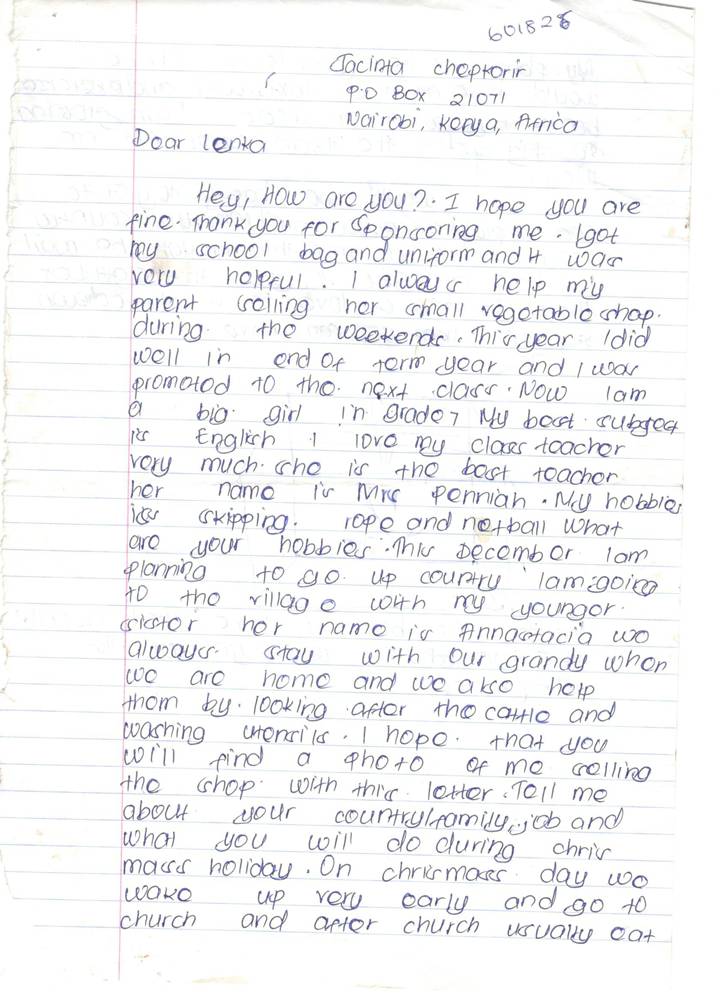 601828
Jacinta cheptorir
P.O BOX 21071
Nairobi, Kenya, Africa
Dear lenka
Hey, HOW are you?. I hope you are
fine. Thank you for sponsoring me. I got
my school bag and uniform and it was
very helpful. I always help my
parent selling her small vegetable shop.
during the weekends. This year I did
well in end of term year and I was
promoted to the next class. Now I am
a big girl in grade 7 My best subject
is English I love my class teacher
very much. she is the best teacher
her name is Mrs Penniah. My hobbies
is skipping. rope and netball What
are your hobbies. This December I am
planning to go up country I am going
to the village with my younger.
sister her name is Annastacia we
always stay with our grandy when
we are home and we also help
them by. looking after the cattle and
washing utensils. I hope. that you
will find a photo of me selling
the shop with this letter. Tell me
about your country,family,job and
what you will do during chris
mass holiday. On chrismass day we
wake up very early and go to
church and after church usually eat